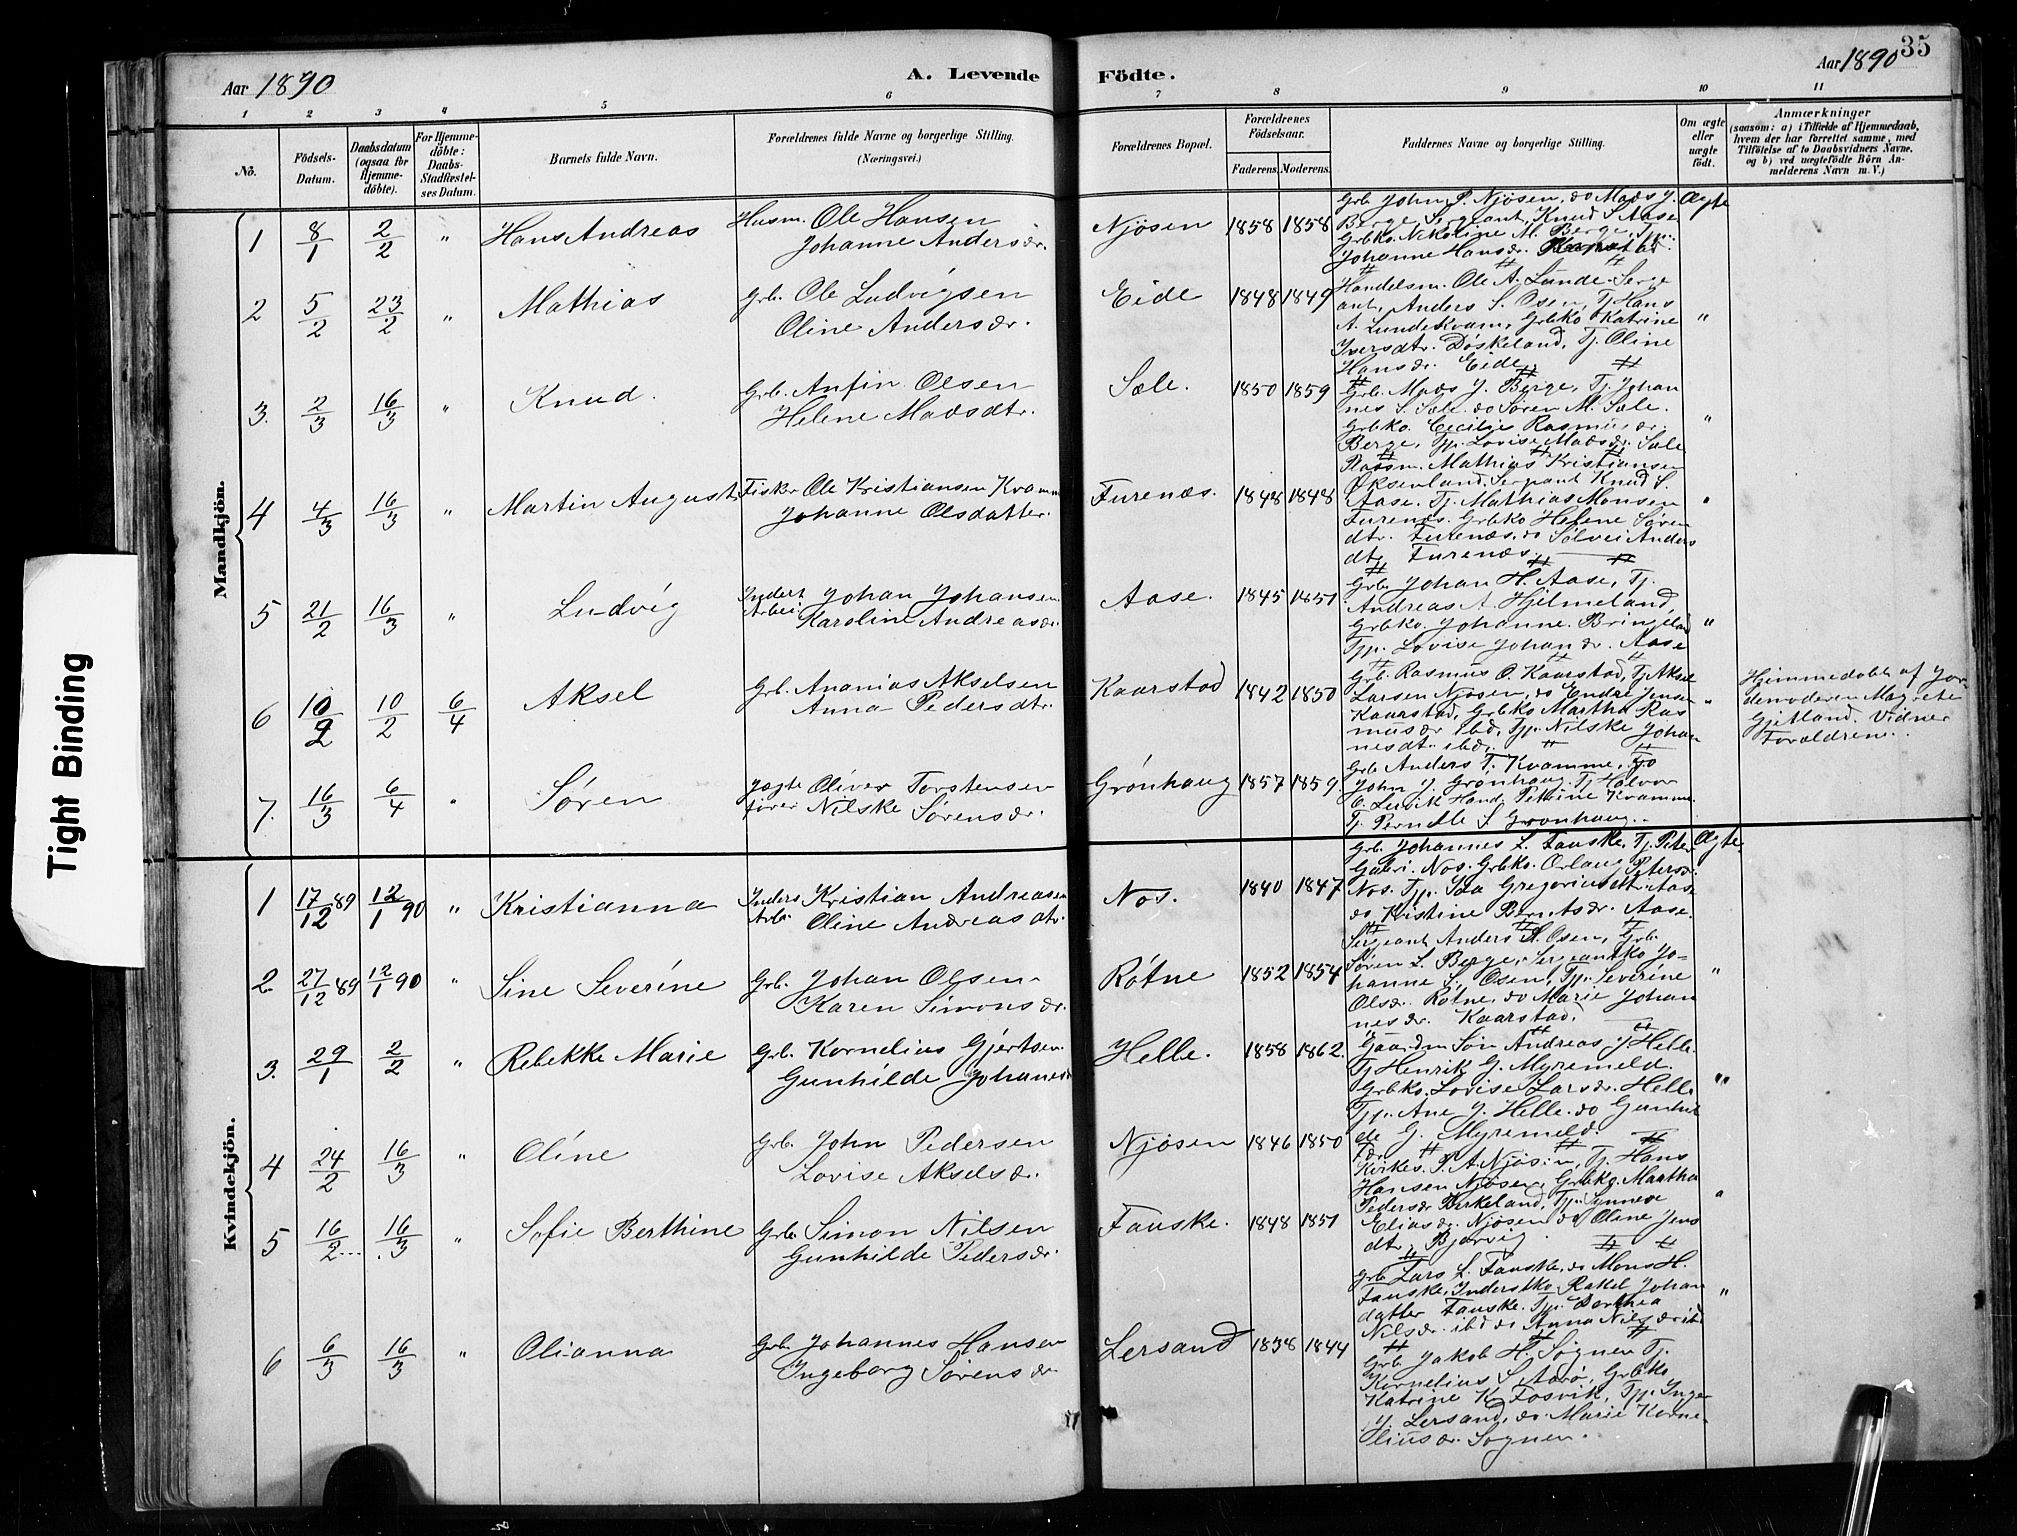 35
Aar 1890
A. Levende Födte.
Aar 1890
1 2 3 4 5 6 7 8 9 10 11
No.
Födsels-Datum.
Daabsdatum (ogsaa for Hjemme-döbte).
For Hjemme-döbte: Daabs-Stadfæstel-ses Datum.
Barnets fulde Navn.
Forældrenes fulde Navne og borgerlige Stilling.
(Næringsvei.)
Forældrenes Bopæl.
Forældrenes Födselsaar.
Faderens. Moderens.
Faddernes Navne og borgerlige Stilling.
Om ægte eller uægte födt.
Anmærkninger
(saasom: a) i Tilfælde af Hjemmedaab,
hvem der har forrettet samme, med
Tilföielse af to Daabsvidners Navne,
og b) ved uægtefödte Börn An-
melderens Navn m. V.)
Mandkjön.
1 8/1 2/2 " Hans Andreas Husm. Ole Hansen
Johanne Andersdr. Njøsen 1858 1858 Ægte
Grb John P. Njøsen, do Mads J.
Berge, Sergeant, Knud S. Aase
Grbko. Nikoline M. Berge, Tp.
Johanne Hansdr.
2 5/2 23/2 " Mathias Grb. Ole Ludvigsen
Oline Andersdr. Eide 1848 1849 "
Handelsm. Ole A. Lunde. Serge
ant, Anders S. Osen, Tj Hans
A. Lunde Kvam, Grbko Katrine
Iversdtr. Døskeland, Tj. Oline
Hansdr. Eide
3. 2/3 16/3 " Knud. Grb. Anfin Olsen
Helene Madsdtr. Sæle. 1850 1859 "
Grb. Mads J. Berge, Tj. Johan
nes S. Sæle. do Søren M. Sæle.
Grbko. Cecilie Rasmusdr.
Berge, Tp. Lovise Madsdr. Sæle
4 4/3 16/3 " Martin August Fisker Ole Kristiansen Kvamm
Johanne Olsdatter. Furenæs. 1848 1848 "
Mathias Kristiansen
Øksenland, Serjeant Knud S.
Aase, Tj. Mathias Monsen
Furenæs. Grbko Helene Søren
dtr. Furenæs, do Sølvei Anders
dtr Furenæs.
5 21/2 16/3 " Ludvig Inderst Arbei Johan Johansen
Karoline Andreasdr. Aase. 1845 1851 "
Grb. Johan H. Aase, Tj.
Andreas A. Hjelmeland,
Grbko. Johanne. Bringeland
Tp. Lovise Johandr. Aase
6 10/2 10/2 6/4 Aksel Grb. Ananias Akselsen
Anna Pedersdtr. Kaarstad 1842 1850 "
Grb. Rasmus O. Kaarstad, Tj. Aksel
Larsen Njøsen, do Endre Jensen
Kaarstad, Grbko Martha Ras
musdr ibd, Tp. Nilske Johan
nesdt. ibd.
Hjemmedøbt af Jor-
demoderen Magrete
Gjitland. Vidner
Forældrene.
7. 16/3 6/4 " Søren Jægte fører Oliver Torstensen
Nilske Sørensdr. Grønhaug 1857 1859.
Grb Anders T. Kvamme, do
John J. Grønhaug. Tj Halvor
Lervik Petrine Kvamme
Tj. Pernelle S. Grønhaug.
Kvindekjön.
1 17/12 89 12/1 90 " Kristianna Inders Arb. Kristian Andreasen
Oline Andreasdtr. Nos. 1840 1847 Ægte
Grb. Johannes L. Fauske, Tj. Peter
Gabri. Nos. Grbko. Orlaug Petersdr.
Nos. Tp. Gregoriusdtr. Aase
do Kristine Berntsdr. Aase.
2. 27/12 89 12/1 90 " Sine Severine Grb. Johan Olsen
Karen Simonsdr. Rötne 1852 1854 "
Sergeant Anders S. Osen, Grb.
Søren L. Berge, Sergeantko Jo-
hanne S. Osen, Tp. Severine
Olsdr. Røtne, do Marie Johan
nesdr. Kaarstad.
3. 29/1 2/2 " Rebekke Marie Grb. Kornelius Gjertsen
Gunhilde Johanesd Helle. 1858 1862. "
Gaardm Søn Andreas J Helle.
Tj Henrik G. Myremeld.
Grbko. Lovise Larsdr. Helle
Tp. Ane J. Helle. do Gunhil
de G. Myremeld.
4 24/2 16/3 " Oline Grb. John Pedersen
Lovise Akselsdr. Njøsen 1846 1850 "
Kirkes. P. A. Njøsen, Tj. Hans
Hansen Njøsen, Grbkg. Martha
Pedersdr Birkeland, Tp. Synneve
Eliasdr. Njøsen do Oline Jens
dtr. Bjørvig.
5 16/2 16/3 " Sofie Berthine Grb. Simon Nilsen
Gunhilde Pedersdr. Fauske. 1848 1851 "
Grb Lars L. Fauske, do Mons H.
Fauske, Inderstko Rakel Johan
datter Fauske. Tp. Dorthea
Nilsdr. ibd do Anna Nilsdr ibd
6 6/3 16/3 " Olianna Grb. Johannes Hansen
Ingeborg Sørensdr Lersand 1838 1844
Grb. Jakob H. Sognen Tj.
Kornelius S. Aarø, Grbko
Katrine K Fosvik, Tp. Inger
J. Lersand, do Marie Korne-
liusdr. Sognen.
Tight Binding